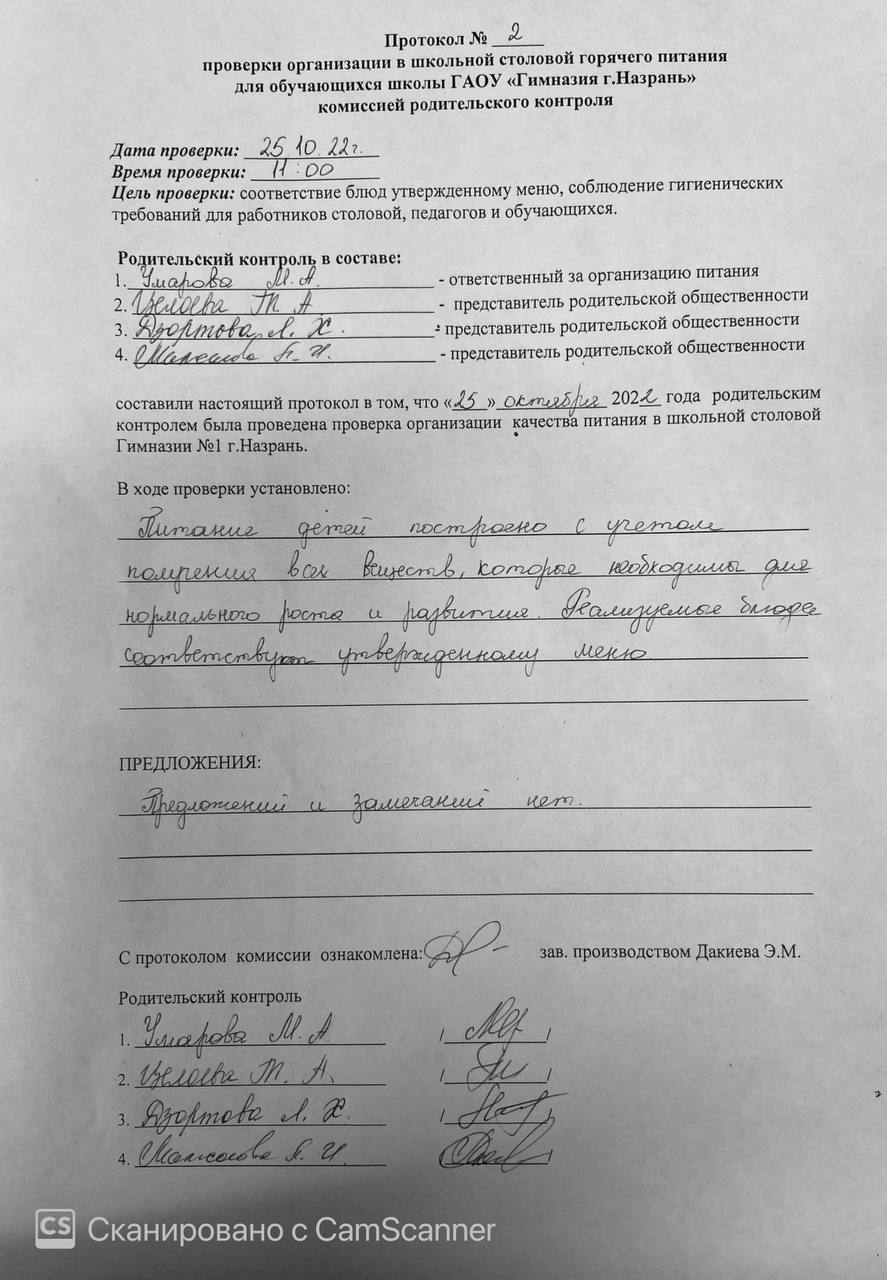 Протокол № 2
проверки организации в школьной столовой горячего питания
для обучающихся школы ГАОУ «Гимназия г.Назрань»
комиссией родительского контроля
Дата проверки: 25.10.22г.
Время проверки: 11:00
Цель проверки: соответствие блюд утвержденному меню, соблюдение гигиенических
требований для работников столовой, педагогов и обучающихся.
Родительский контроль в составе:
1. Умарова М. А. - ответственный за организацию питания
2. Цолоева Т. А - представитель родительской общественности
3. Дзортова Л. Х. - представитель родительской общественности
4. - представитель родительской общественности
составили настоящий протокол в том, что «25» октября 2022 года родительским
контролем была проведена проверка организации качества питания в школьной столовой
Гимназии №1 г.Назрань.
В ходе проверки установлено:
Питание детей построено с учетом
получения всех веществ, которые необходимы для
нормального роста и развития. Реализуемые блюда
соответствуют утвержденному меню.
ПРЕДЛОЖЕНИЯ:
Предложений и замечаний нет.
С протоколом комиссии ознакомлена: зав. производством Дакиева Э.М.
Родительский контроль
1. Умарова М. А / /
2. Цолоева Т. А. / /
3. Дзортова Л. Х. / /
4. / /
CS Сканировано с CamScanner